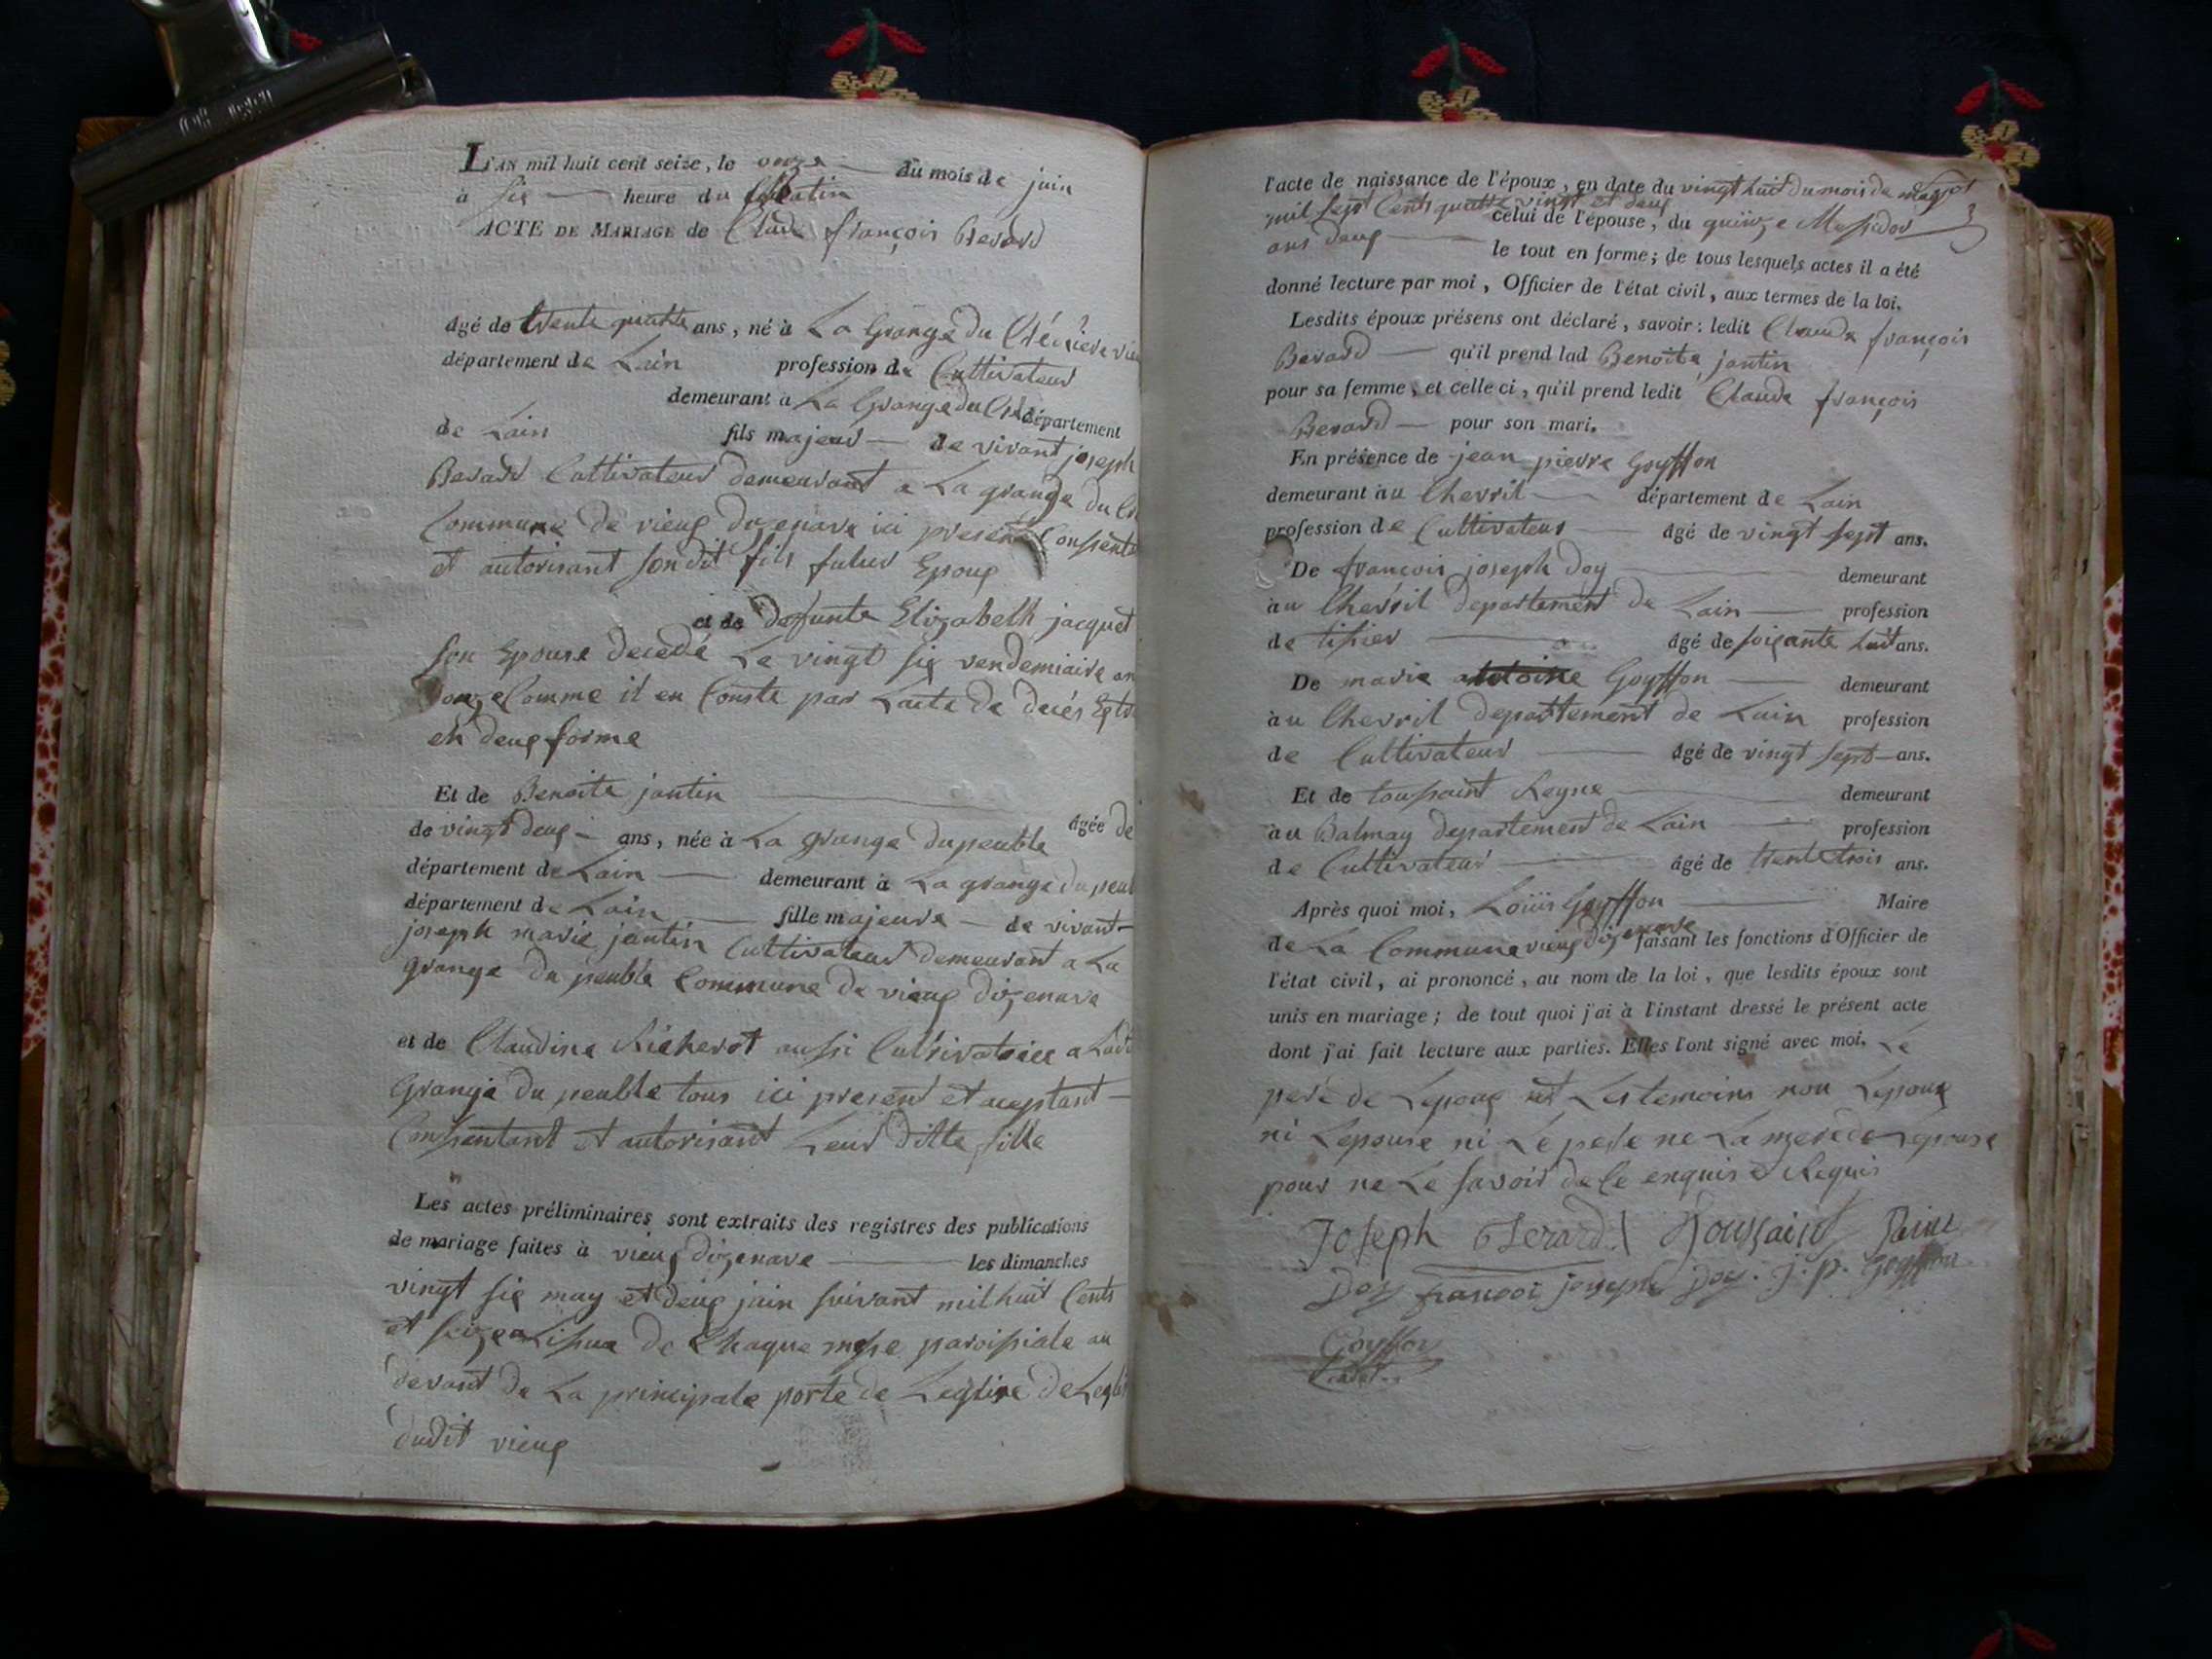 L'AN mil huit cent seize, le onze du mois de juin
à six heure du Matin
ACTE DE MARIAGE de Claude françois Berard
âgé de trente quatre ans, né à La Grange du
département de Lain profession de Cultivateur
demeurant à La Grange du département
de Lain fils majeur de vivant joseph
Berard Cultivateur demeurant a La grange du
Commune de vieux dizenave ici present Consent
et autorisant son dit fils futur Epoux
et de defunte Elizabelh jacquet
son Epouse decedé Le vingt six vendemiaire an
Comme il en Conste par Lacte de decés
en deux forme
Et de Benoite jantin âgée de
de vingt deux ans, née à La grange dupeuble
département de Lain demeurant à La grange du peub
département de Lain fille majeure de vivant
joseph marie jantin Cultivateur demeurant a La
grange du peuble Commune de vieux dizenave
et de Claudine Richerot aussi Cultivatrice a Ladi
Grange du peuble tous ici present et aceptant
Consentant et autorisant Leur ditte fille
Les actes préliminaires sont extraits des registres des publications
de mariage faites à vieux dizenave les dimanches
vingt six may et deux juin suivant mil huit Cents
et seize a Lissue de Chaque messe paroissiale au
devant de La principale porte de Leglise de Legli
dudit vieux
l'acte de naissance de l'époux, en date du vingt huit du mois de
mil sept Cents quatre vingt et deux celui de l'épouse, du quinze Messidor
ans deux le tout en forme; de tous lesquels actes il a été
donné lecture par moi, Officier de l'état civil, aux termes de la loi.
Lesdits époux présens ont déclaré, savoir: ledit Claude françois
Berard qu'il prend lad Benoite jantin
pour sa femme, et celle ci, qu'il prend ledit Claude françois
Berard pour son mari.
En présence de jean pierre Goyffon
demeurant au Chevril département de Lain
profession de Cultivateur âgé de vingt sept ans.
De françois joseph Doy demeurant
au Chevril departement de Lain profession
de tissier âgé de soixante huit ans.
De marie antoine Goyffon demeurant
au Chevril departement de Lain profession
de Cultivateur âgé de vingt sept ans.
Et de toussaint Reyne demeurant
au Balmay departement de Lain profession
de Cultivateur âgé de trente trois ans.
Après quoi moi, Loüis Goyffon Maire
de La Commune vieux dizenave faisant les fonctions d'Officier de
l'état civil, ai prononcé, au nom de la loi, que lesdits époux sont
unis en mariage; de tout quoi j'ai à l'instant dressé le présent acte
dont j'ai fait lecture aux parties. Elles l'ont signé avec moi. Le
pere de Lepoux et Les temoins non Lepoux
ni Lepouse ni Le pere ne La mere de Lepouse
pour ne Le savoir de Ce enquis et Requis
Joseph Berard Toussaint
Doy francoi joseph Doy. j. p. Goyffon
Goyffon